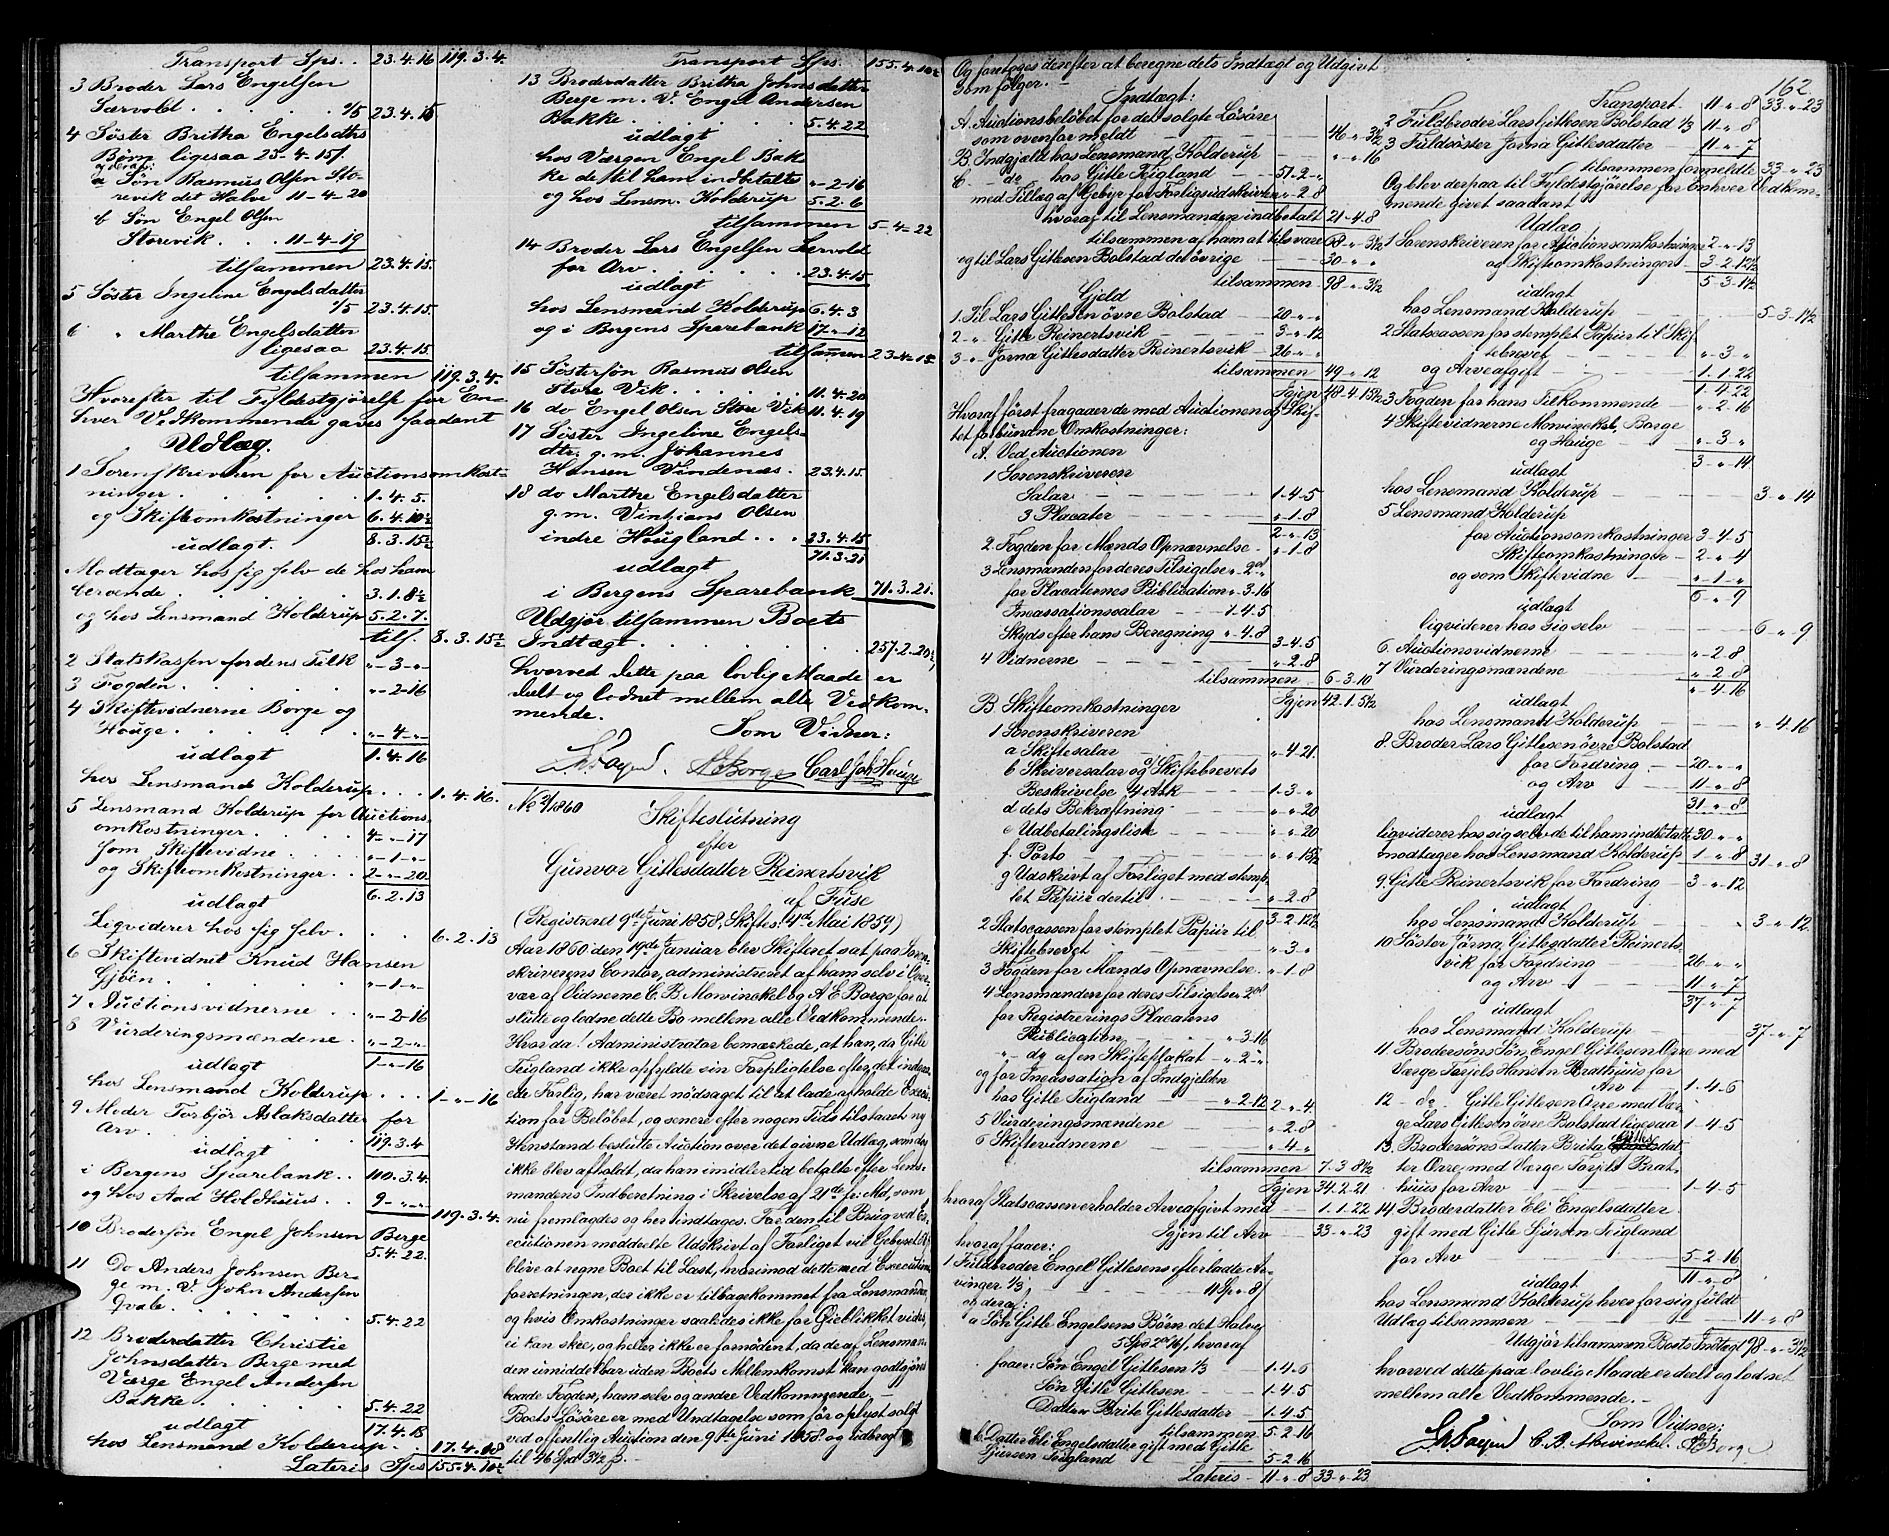 Transport Sps. . 23.4.16 119.3.4.
3 Broder Lars Engelsen
Særvold . . . . 1/5 23.4.15
4 Søster Britha Engelsdtrs
Børn ligesaa 23-4-15/.
a Søn Rasmus Olsen Sto-
revik det Halve 11-4-20
b Søn Engel Olsen
Storevik . . . 11-4-19
tilsammen 23.4.15.
5 Søster Ingeline Engelsdatter
1/5 23.4.15.
6 " Marthe Engelsdatter
ligesaa 23.4.15.
tilsammen 119.3.4.
Hvorefter til Fyldestgjørelse for En-
hver Vedkommende gaves saadant
Udlæg.
1 Sorenskriveren for Auctionsomkost-
ninger . . . . 1.4.5.
og Skifteomkostninger 6.4.10½
udlagt. 8.3.15½
Modtager hos sig selv de hos ham
beroende . . . . 3.1.8½
og hos Lensmand Kolderup 5.2.7.
tils. 8.3.15½
2 Statskassen for dens Tilk "-3-"
3 Fogden . . . . "-2-16
4 Skiftevidnerne Borge og
Houge . . . . "-4-"
udlagt 1.4.16
hos Lensmand Kolderup . . . 1.4.16.
5 Lensmand Kolderup for Auctions
omkostninger . . . 4-"-17
som Skiftevidne . . . "-1-"
og Skifteomkostninger . . 2-"-20
udlagt 6.2.13
Ligviderer hos sig selv . . . 6.2.13
6 Skiftevidnet Knud Hansen
Gjøen . . . . "-1-"
7 Auctionsvidnerne . . "-2-16
8 Vurderingsmændene . "-2-"
udlagt 1-"-16
hos Lensmand Kolderup . . . 1-"-16
9 Moder Torbjør Aslaksdatter for
Arv . . . . 119.3.4
udlagt
i Bergens Sparebank . . 110.3.4.
og hos Aad Holdhuus . . 9-"-"
119.3.4.
10 Brodersøn Engel Johnsen Berge
5.4.22.
11 Do Anders Johnsen Ber-
ge m. V. John Andersen
Qvale . . . . 5.4.22
12 Broderdatter Christie
Johnsdatter Berge med
Værge Engel Andersen
Bakke . . . . 5.4.22
udlagt 17.4.18
hos Lensmand Kolderup . . 17.4.18
Lateris Sps 155.4.10½
Transport Sps. 155.4.10½
13 Broderdatter Britha Johnsdatter
Berge m. V. Engel Andersen
Bakke . . . . . 5.4.22
udlagt
hos Værgen Engel Bak
ke deftil ham indbetalte "-2-16
og hos Lensm. Kolderup 5.2.6
tilsammen 5-4-22
14 Broder Lars Engelsen Særvold
for Arv . . . . 23.4.15
udlagt
hos Lensmand Kolderup 6.4.3
og i Bergens Sparebank 17.-"-12
tilsammen 23-4-15
15 Søstersøn Rasmus Olsen
Store Vik . . . . 11.4.20
16 do Engel Olsen Store Vik 11.4.19
17 Søster Ingeline Engels-
dtr. g.m. Johannes
Hansen Vindenæs . 23.4.15.
18 do Marthe Engelsdatter
g.m. Vintsians Olsen
indre Hougland . . . 23.4.15
udlagt 71.3.21
i Bergens Sparebank 71.3.21.
Udgjør tilsammen Boets
Indtægt . . . . . 257.2.20½,
hvorved dette paa lovlig Maade er
deelt og lodnet mellem alle Vedkom-
mende.
Som Vidner:
AE Borge Carl Joh Houge
No 2/1860 Skifteslutning
efter
Gunvor Gitlesdatter Reinertsvik
af Fuse
(Registreret 9de Juni 1858, Skiftes. 4de Mai 1859)
Aar 1860 den 19de Januar blev Skifteret sat paa Soren-
skriverens Contor, administreret af ham selv i Over-
vær af Vidnerne C B Mowinckel og A E Borge for at
slutte og lodne dette Bo mellem alle Vedkommende.
Hvor da! Administrator bemærkede, at han, da Gitle
Teigland ikke opfyldte sin Forpligtelse efter det indgaa-
ede Forlig, har været nødsaget til at lade afholde Execu-
tion for Beløbet, og senere efter nogen Tids tilstaaet ny
Henstand beslutte Auction over det givne Udlæg, som dog
ikke blev afholdt, da han imidlertid betalte efter Lens-
mandens Indberetning i Skrivelse af 21de f. Md, som
nu fremlagdes og her indtages. For den til Brug ved Ex-
ecutionen meddeelte Udskrivt af Forliget vil Gebyret
blive at regne Boet til Last, hvorimod dette med Executions
forretningen, der ikke er tilbagekommet fra Lensmanden,
og hvis Omkostninger saaledes ikke for Øieblikket vides,
ei kan skee, og heller ikke er fornødent, da de af Lensman-
den umiddelbar uden Boets Mellemkomst kan godtgjøres
baade Fogden, ham selv og andre Vedkommende. —
Boets Løsøre er med Undtagelse som før oplyst solgt
ved offentlig Auction den 9de Juni 1858 og udbragt
til 46 Spd 3½ ß. —
162.
Og foretoges derefter at beregne dets Indtægt og Udgivt
som følger. —
Indtægt:
A. Auctionsbeløbet for det solgte Løsøre
som ovenfor meldt — 46 " 3½
B. Indgjæld hos Lensmand Kolderup — " " 16
C. — do — hos Gitle Teigland — 51-2-"
med Tillæg af Gebyr for Forligsudskriven "-2-8
hvoraf til Lensmanden indbetalt 21-4-8
tilsammen af ham at tilsvare 68-"-3½
og til Lars Gitlesen Bolstad det øvrige — 30-"-"
tilsammen 98-"-3½
Gjeld
1. Til Lars Gitlesen øvre Bolstad — 20-"-"
2 - " - Gitle Reinertsvik — 3-"-12
3 " Jorna Gitlesdatter Reinertsvik — 26-"-"
tilsammen 49-"-12
Igjen 48-4-15½
Hvoraf først fragaaer de med Auctionen og Skif-
tet forbundne Omkostninger:
A. Ved Auctionen
1 Sorenskriveren
Salar — 1-4-5
3 Placater — "-1-8
2-"-13
2. Fogden for Mænds Opnævnelse "-1-8
3 Lensmanden for deres Tilsigelse "-2-"
for Placaternes Publication "-3-16
Incassationssalar — 1-4-5
Skyds efter hans Beregning "-4-8
3-4-5
4 Vidnerne — "-2-8
tilsammen 6-3-10
Igjen 42-1-5½
B. Skifteomkostninger
1 Sorenskriveren
a Skiftesalar — "-4-21
b Skriversalar og c/ Skiftebrevets
Beskrivelse, 4 Ark — 1-3-"
d dets Bekræftning — "-"-20
e Udbetalingsliste — "-"-20
f. Porto — "-"-15½
g Udskrivt af Forliget med stemp-
let Papiir dertil — "-2-8
3-2-12½
2 Statscassen for stemplet Papiir til
Skiftebrevet — "-3-"
3 Fogden for Mænds Opnævnelse. — "-1-8
4 Lensmanden for deres Tilsigelse
for Registrerings Placatens
Publication — "-3-16
" - do af en Skifteplakat — "-2-"
og for Incassation af Indgjelden
hos Gitle Teigland — "-2-12 2-"-4
5 Vurderingsmændene — "-2-8
6 Skiftevidnerne — "-4-"
tilsammen 7-3-8½
Igjen 34-2-21
hvoraf Statscassen erholder Arveafgivt med — 1-1-22
Igjen til Arv — 33-"-23
hvoraf faaer:
1 Fuldbroder Engel Gitlesens efterladte Ar-
vinger 1/3 11 Sp " 8/
og deraf:
a Søn Gitle Engelsens Børn det Halve
hvoraf
faaer: Søn Engel Gitlesen 1/3 — 1-4-6
Søn Gitle Gitlesen — 1-4-5
Datter Brite Gitlesdatter — 1-4-5
tilsammen 5-2-16
b Datter Eli Engelsdatter gift med Gitle
Sjursen Teigland — 5-2-16
Lateris — 11-"-8 33-"-23
Transport — 11-"-8 33-"-23
2 Fuldbroder Lars Gitlesen Bolstad 1/3 11-"-8
3 Fuldsøster Jorna Gitlesdatter — 11-"-7
tilsammen formeldte 33-"-23
Og blev derpaa til Fyldestgjørelse for Enhver Vedkom-
mende givet saadant
Udlæg
1 Sorenskriveren for Auctionsomkostninger 2-"-13
og Skifteomkostninger — 3-2-12½
5-3-1½
udlagt
hos Lensmand Kolderup — 5-3-1½
2 Statscassen for stemplet Papiir til Skif-
tebrevet — "-3-"
og Arveafgift — 1-1-22
1-4-22
3 Fogden for hans Tilkommende — "-2-16
4 Skiftevidnerne Mowinckel, Borge
og Houge — "-3-"
3-"-14
udlagt
hos Lensmand Kolderup — 3-"-14
5 Lensmand Kolderup
for Auctionsomkostninger 3-4-5
Skifteomkostninger — 2-"-4
og som Skiftevidne — "-1-"
6-"-9
udlagt
liqviderer hos sig selv — 6-"-9
6. Auctionsvidnerne — "-2-8
7 Vurderingsmændene — "-2-8
"-4-16
udlagt
hos Lensmand Kolderup — "-4-16
8. Broder Lars Gitlesen øvre Bolstad
for Fordring — 20-"-"
og Arv — 11-"-8
31-"-8
udlagt
liqviderer hos sig selv de til ham indbetalte 30-"-"
modtager hos Lensmand Kolderup 1-"-8 31-"-8
9. Gitle Reinertsvik for Fordring — 3-"-12
udlagt
hos Lensmand Kolderup — 3-"-12.
10 Søster Jorna Gitlesdatter Reinerts-
vik for Fordring — 26-"-"
og Arv — 11-"-7
37-"-7
udlagt
hos Lensmand Kolderup — 37-"-7
11. Brodersøns Søn Engel Gitlesen Orre med
Værge Torjels Hansen Brathuus for
Arv — 1-4-6
12 — do. Gitle Gitlesen Orre med Vær-
ge Lars Gitlesen øvre Bolstad ligesaa 1-4-5
13. Brodersøns Datter Brita Gitlesdat-
ter Orre, med Værge Torjels Brat-
huus for Arv — 1-4-5
14 Broderdatter Eli Engelsdatter
gift med Gitle Sjursen Teigland
for Arv — 5-2-16
11-"-8
udlagt
hos Lensmand Kolderup hver for sig fuldt
Udlæg tilsammen — 11-"-8
Udgjør tilsammen Boets Indtægt 98-"-3½
hvorved dette paa lovlig Maade er deelt og lodnet
mellem alle Vedkommende. —
Som Vidner:
C. B. Mowinckel. AE Borge